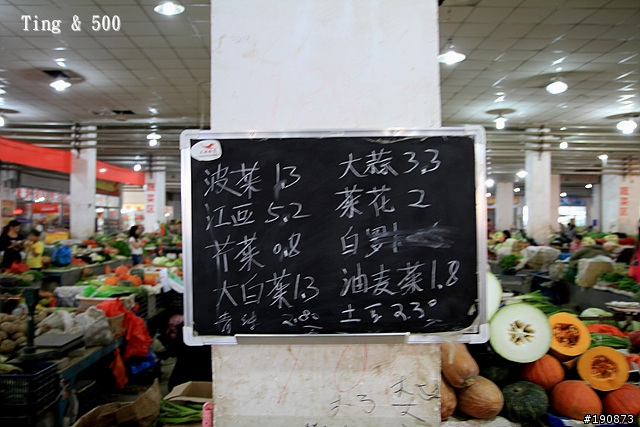 Ting & 500
波菜 1.3
江豆 5.2
芹菜 0.8
大白菜 1.3
大蒜 3.3
菜花 2
白萝卜
油麦菜 1.8
土豆 2.3
#190873